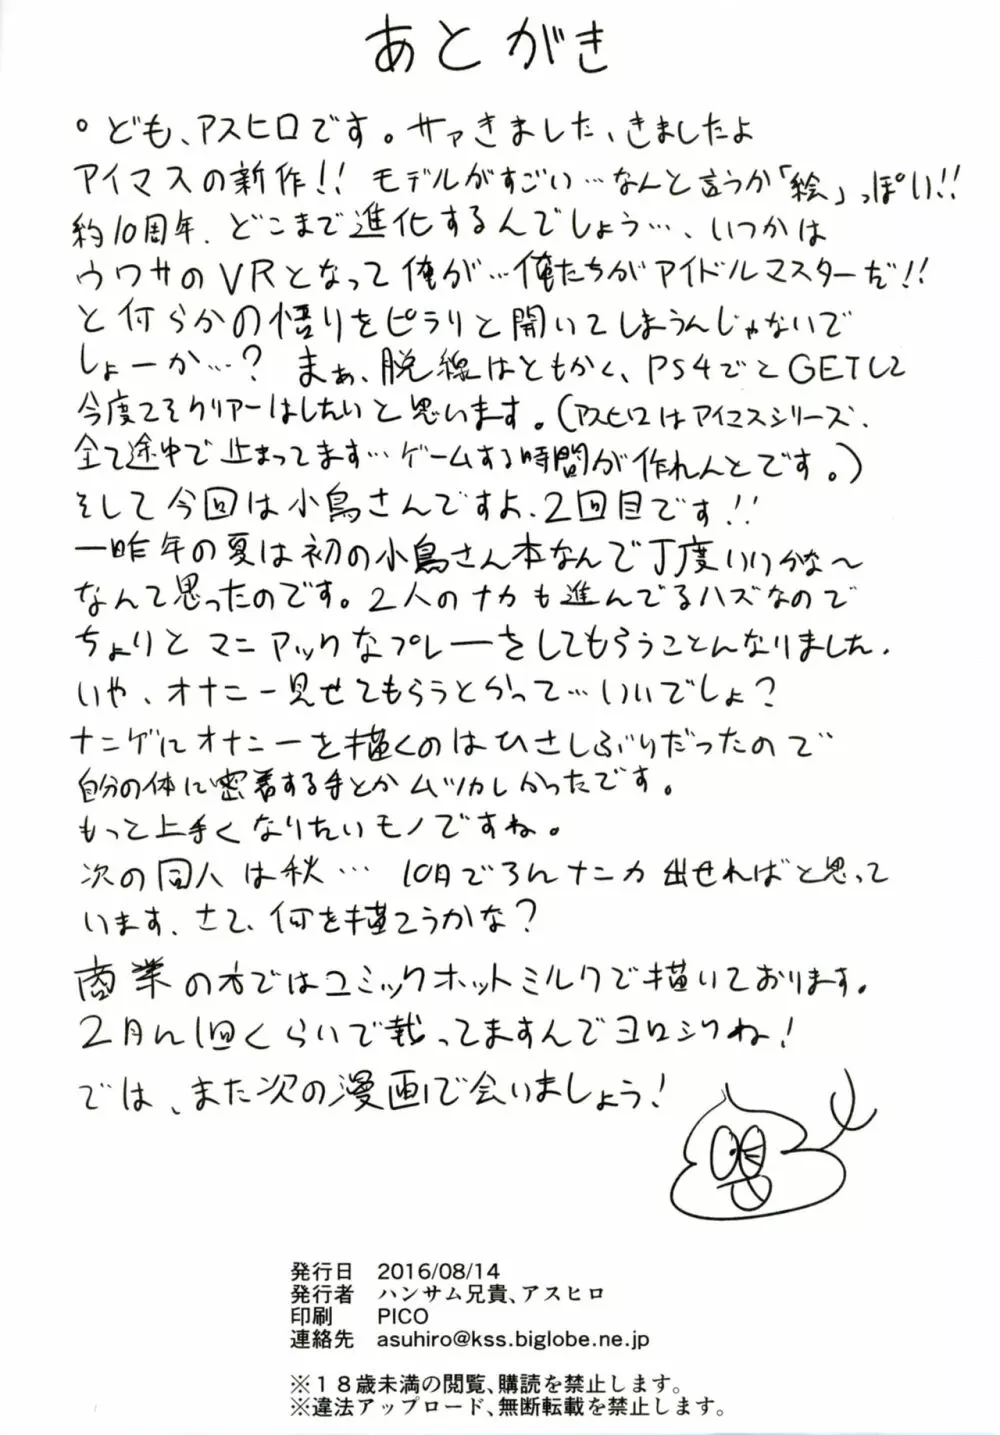 あとがき
。ども、アスヒロです。サァきました、きましたよ
アイマスの新作!! モデルがすごい…なんと言うか「絵」っぽい!!
約10周年、どこまで進化するんでしょう…、いつかは
ウワサのVRとなって俺が…俺たちがアイドルマスターだ!!
と何らかの悟りをピラリと開いてしまうんじゃないで
しょーか…? まぁ、脱線はともかく、PS4でとGETして
今度こそクリアーはしたいと思います。(アスヒロはアイマスシリーズ、
全て途中で止まってます…ゲームする時間が作れんとです。)
そして今回は小鳥さんですよ、2回目です!!
一昨年の夏は初の小鳥さん本なんで丁度いいかな〜
なんて思ったのです。2人のナカも進んでるハズなので
ちょりとマニアックなプレーをしてもらうことんなりました。
いや、オナニー見せてもらうとかって…いいでしょ?
ナニゲにオナニーを描くのはひさしぶりだったので
自分の体に密着する手とかムツカしかったです。
もっと上手くなりたいモノですね。
次の同人は秋… 10月でろんナニカ出せればと思って
います、さて、何を描こうかな?
商業の方ではコミックホットミルクで描いております。
2月に1回くらいで載ってますんでヨロシクね!
では、また次の漫画で会いましょう!
発行日 2016/08/14
発行者 ハンサム兄貴、アスヒロ
印刷 PICO
連絡先 asuhiro@kss.biglobe.ne.jp
※18歳未満の閲覧、購読を禁止します。
※違法アップロード、無断転載を禁止します。